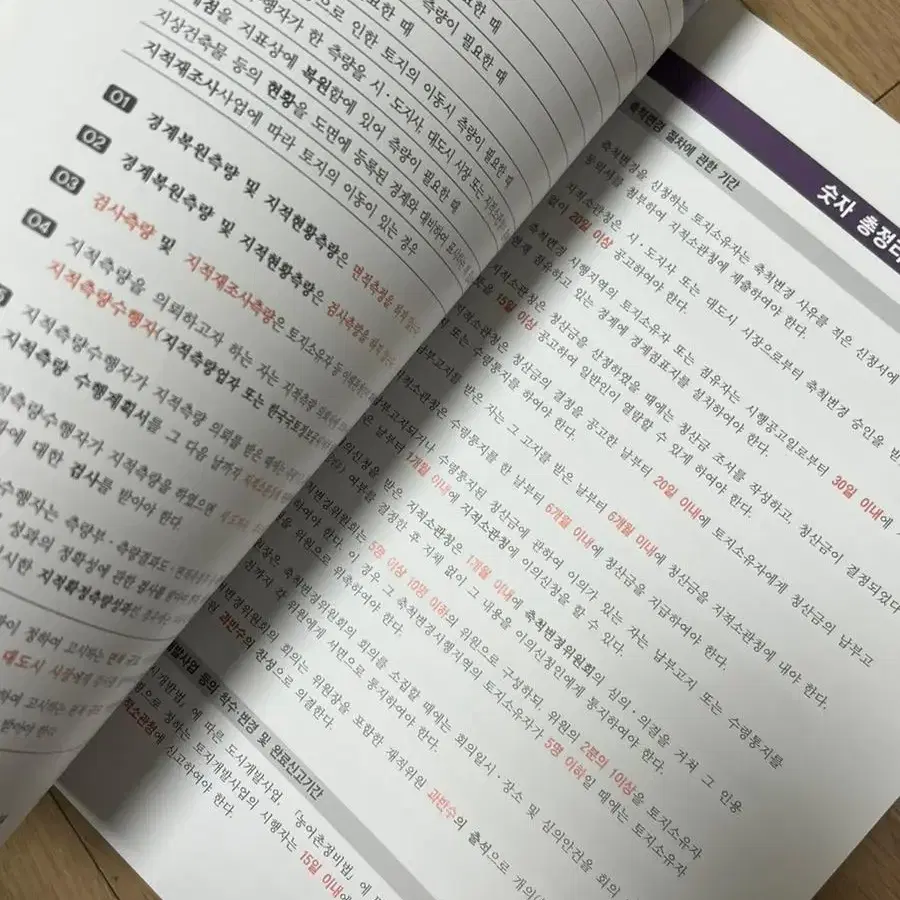 측량이 필요한 때
으로 인한 토지의 이동시 측량이 필요한 때
행자가 한 측량을 시·도지사, 대도시 시장 또는
점을 지표상에 복원함에 있어 측량이 필요한 때
지상건축물 등의 현황을 도면에 등록된 경계와 대비하여
지적재조사사업에 따라 토지의 이동이 있는 경우
01 경계복원측량 및 지적현황측량은 면적측정을
02 경계복원측량 및 지적현황측량은 검사측량을
03 검사측량 및 지적재조사측량은 토지소유자 등
04 지적측량을 의뢰하고자 하는 자는 지적측량
지적측량수행자(지적측량업자 또는 한국국토정보공사
지적측량수행자가 지적측량 의뢰를 받은 때에는
지적측량 수행계획서를 그 다음 날까지 지적소관청에
적측량수행자가 지적측량을 하였으면
에 대한 검사를 받아야 한다.
수행자는 측량부·측량결과도·
성과의 정확성에 관한 검사를
시한 지적확정측량성과
이 정하여 고시하는 면적
대도시 시장
하여 고시하는 면적
받아야 한다
숫자 총정리
축척변경 절차에 관한 기간
축척변경을 신청하는 토지소유자는 축척변경 사유를 적은 신청서에
동의서를 첨부하여 지적소관청에 제출하여야 한다.
지적소관청은 시·도지사 또는 대도시 시장으로부터 축척변경 승인을
없이 20일 이상 공고하여야 한다.
축척변경 시행지역의 토지소유자 또는 점유자는 시행공고일로부터 30일 이내에
현재 점유하고 있는 경계에 경계점표지를 설치하여야 한다.
적소관청은 청산금을 산정하였을 때에는 청산금 조서를 작성하고, 청산금이 결정되었다
15일 이상 공고하여 일반인이 열람할 수 있게 하여야 한다.
적소관청은 청산금의 결정을 공고한 날부터 20일 이내에 토지소유자에게 청산금의 납부고
또는 수령통지를 하여야 한다.
납부고지를 받은 자는 그 고지를 받은 날부터 6개월 이내에 청산금을 지적소관청에 내야 한다.
적소관청은 수령통지를 한 날부터 6개월 이내에 청산금을 지급하여야 한다.
납부고지되거나 수령통지된 청산금에 관하여 이의가 있는 자는 납부고지 또는 수령통지를
은 날부터 1개월 이내에 지적소관청에 이의신청을 할 수 있다.
의신청을 받은 지적소관청은 1개월 이내에 축척변경위원회의 심의·의결을 거쳐 그 인용
여부를 결정한 후 지체 없이 그 내용을 이의신청인에게 통지하여야 한다.
변경위원회는 5명 이상 10명 이하의 위원으로 구성하되, 위원의 2분의 1이상을 토지소유자
하여야 한다. 이 경우 그 축척변경시행지역의 토지소유자가 5명 이하일 때에는 토지소유자
을 위원으로 위촉하여야 한다.
장은 축척변경위원회의 회의를 소집할 때에는 회의일시·장소 및 심의안건을 회의
까지 각 위원에게 서면으로 통지하여야 한다.
변경위원회의 회의는 위원장을 포함한 재적위원 과반수의 출석으로 개의
원 과반수의 찬성으로 의결한다.
개발사업 등의 착수·변경 및 완료신고기간
시개발법」에 따른 도시개발사업, 「농어촌정비법」에
령으로 정하는 토지개발사업의 시행자는 15일 이내에
적소관청에 신고하여야 한다.